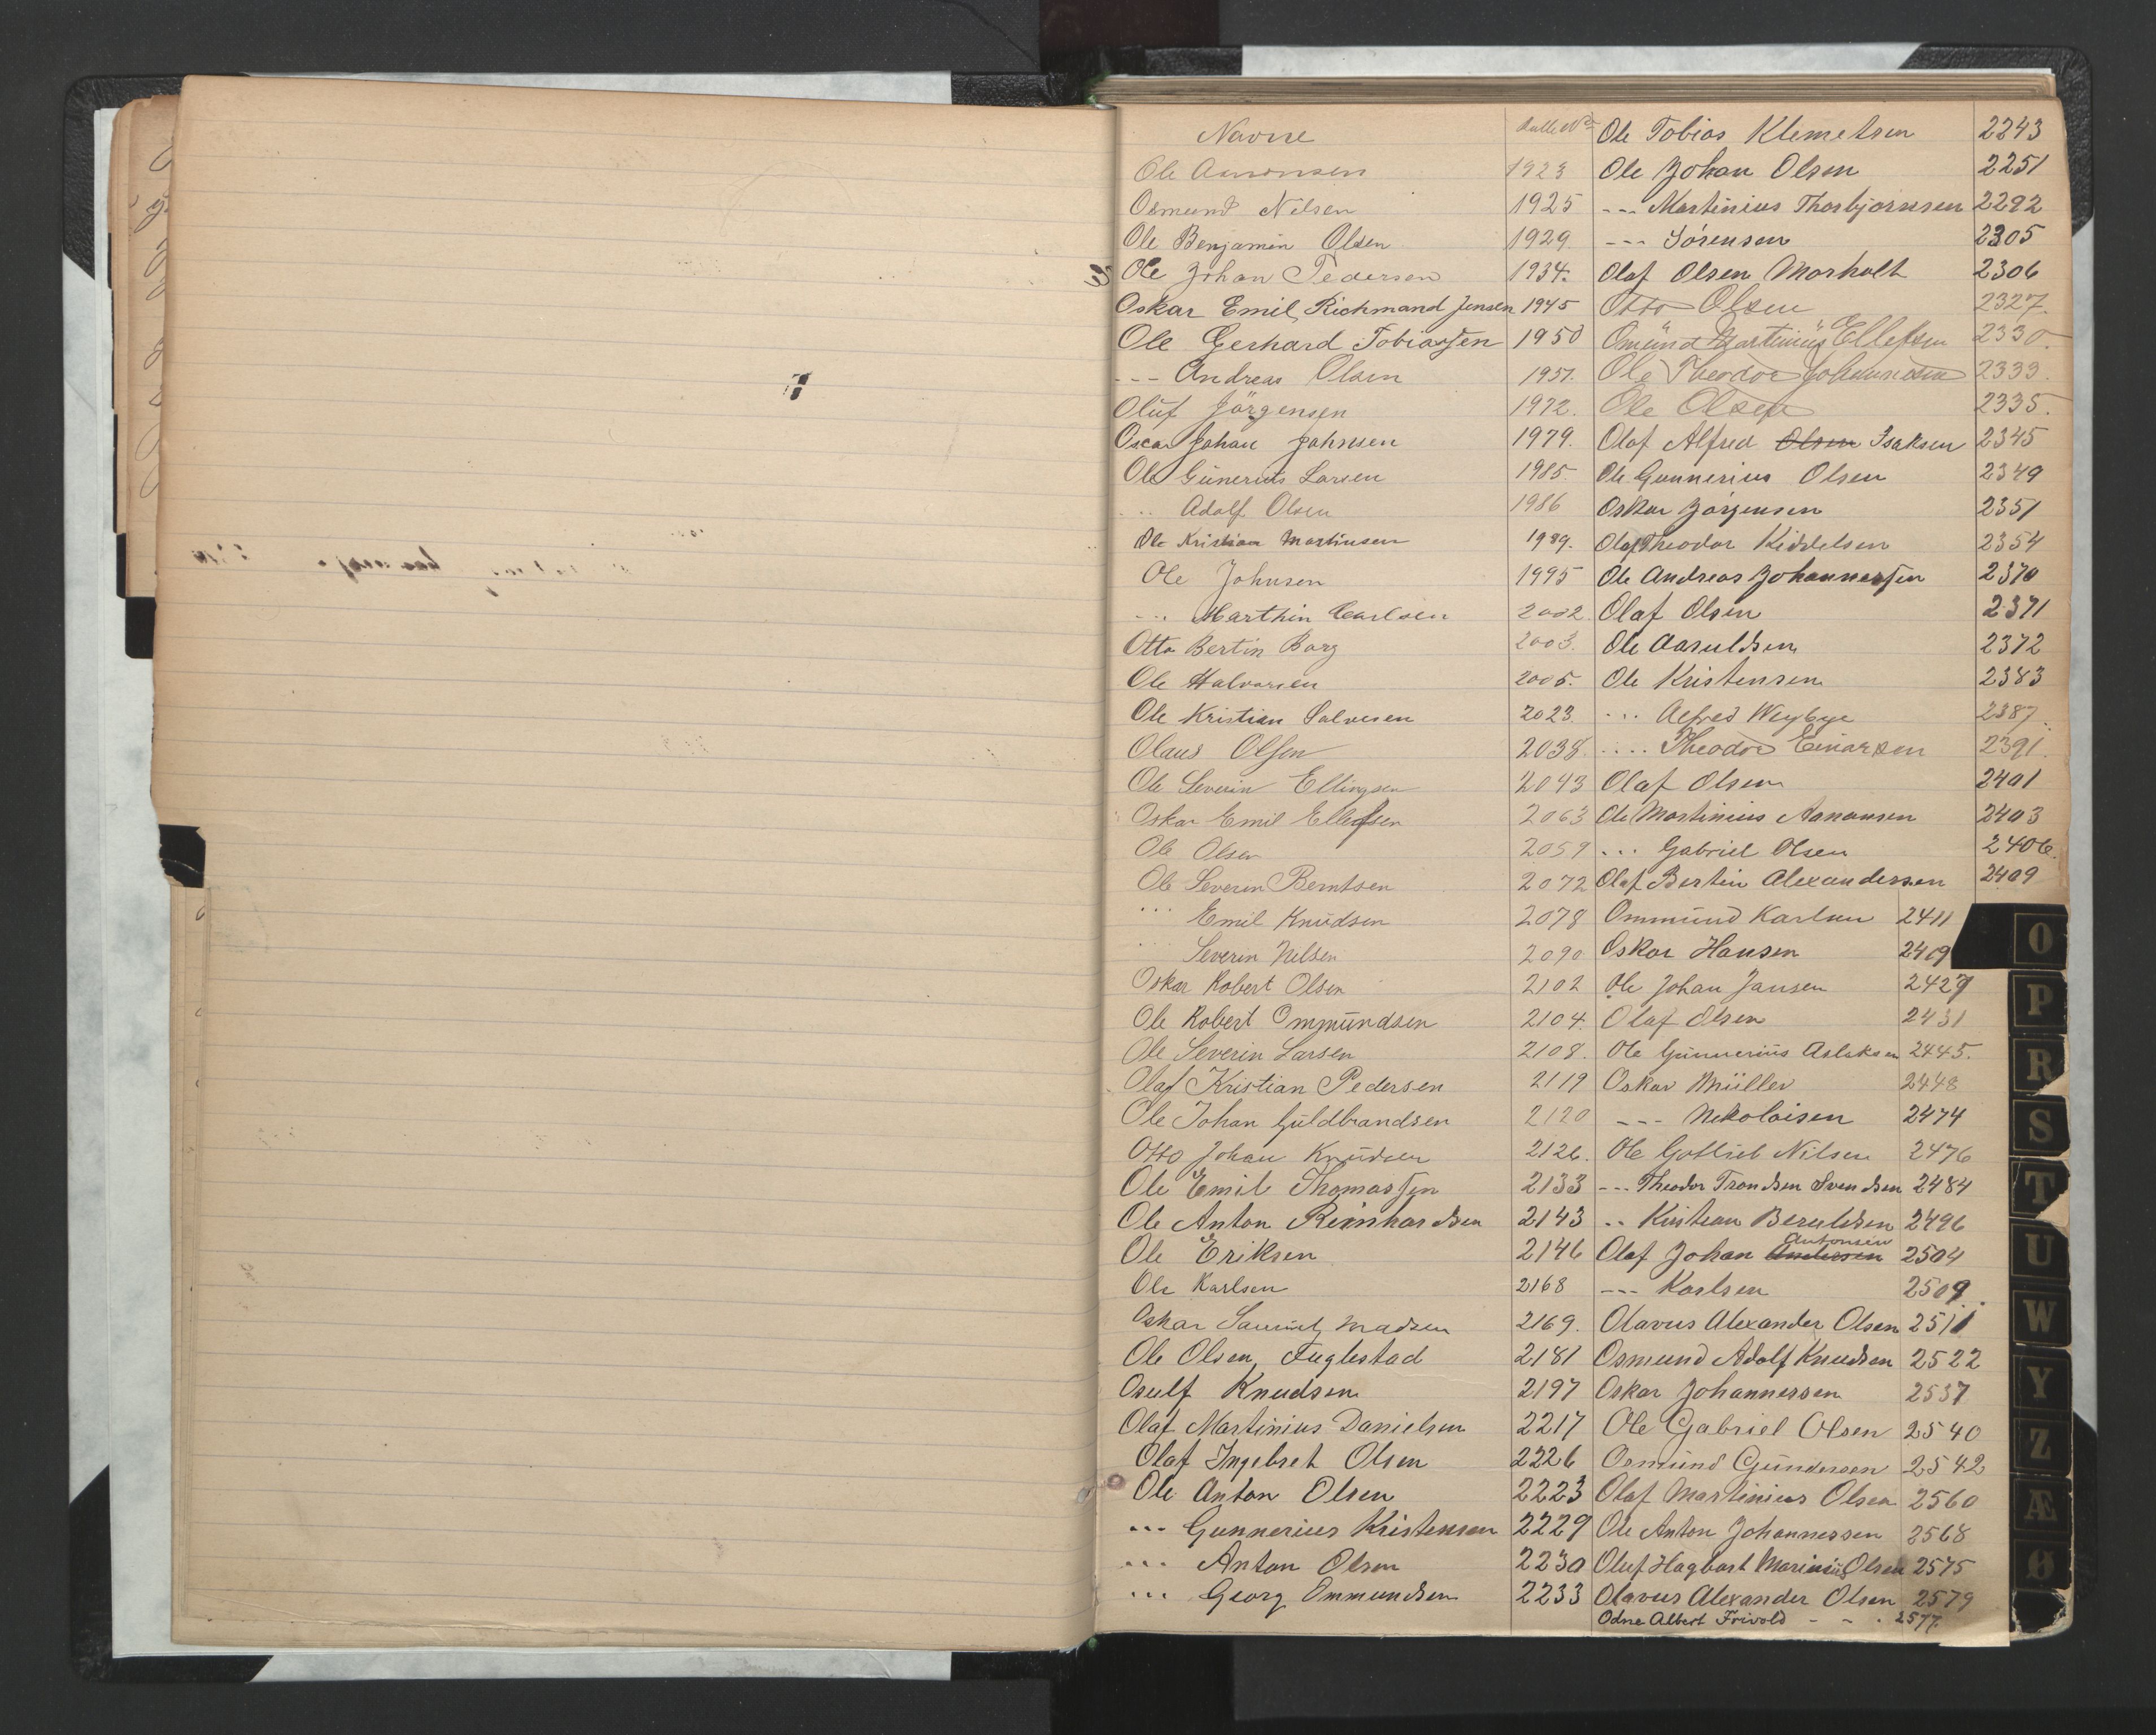 Navne Rulle No
Ole Aanonsen 1923
Osmund Nilsen 1925
Ole Benjamin Olsen 1929.
Ole Johan Pedersen 1934.
Oskar Emil, Richmand Jensen 1945
Ole Gerhard Tobiassen 1950
--- Andreas Olsen 1951.
Oluf Jörgensen 1972.
Oscar Johan Johnsen 1979.
Ole Gunerius Larsen 1985.
... Adolf Olsen 1986
Ole Kristian Martinsen 1989.
Ole Johnsen 1995
--- Marthin Carlsen 2002.
Otto Bertin Borg 2003.
Ole Halvorsen 2005.
Ole Kristian Salvesen 2023.
Olaus Olsen 2038.
Ole Severin Ellingsen 2043
Oskar Emil Ellefsen 2063
Ole Olsen 2059
Ole Severin Berntsen 2072
... Emil Knudsen 2078
... Severin Nelsen 2090
Oskar Robert Olsen 2102
Ole Robert Ommundsen 2104.
Ole Severin Larsen 2108.
Olaf Kristian Pedersen 2119
Ole Johan Guldbrandsen 2120
Otto Johan Knudsen 2126.
Ole Emil Thomassen 2133
Ole Anton Reinhardsen 2143
Ole Eriksen 2146
Ole Karlsen 2168
Oskar Samuel Madsen 2169.
Ole Olsen, Fuglestad 2181
Osulf Knudsen 2197
Olaf Martinius Danielsen 2217
Olaf Ingebret Olsen 2226
Ole Anton Olsen 2223
--- Gunnerius Kristensen 2229
... Anton Olsen 2230
... Georg Ommundsen 2233
Ole Tobias Klemetsen 2243
Ole Johan Olsen 2251
--- Martinius Thorbjørnsen 2292
--- Sørensen 2305
Olaf Olsen Morholt 2306
Otto Olsen 2327.
Omund Martinius Ellefsen 2330.
Ole Theodor Johannesen 2333.
Ole Olsen 2335.
Olaf Alfred Olsen Isaksen 2345
Ole Gunnerius Olsen 2349
Oskar Jørgensen 2351
Olaf Theodor Kiddelsen 2354
Ole Andreas Johannessen 2370
Olaf Olsen 2371
Ole Aasuldsen 2372
Ole Kristensen 2383
... Alfred Weybye 2387.
.... Theodor Einarsen 2391.
Olaf Olsen 2401
Ole Martinius Aanonsen 2403
... Gabriel Olsen 2406.
Olaf Bertin Alexandersen 2409
Ommund Karlsen 2411
Oskar Hansen 2419
Ole Johan Jansen 2427
Olaf Olsen 2431
Ole Gunnerius Aslaksen 2445.
Oskar Müller 2448
--- Nikolaisen 2474
Ole Gotlieb Nilsen 2476
--- Theodor Trondsen Svendsen 2484
.. Kristian Beruldsen 2496
Antonsen
Olaf Johan Andersen 2504
--- Karlsen 2509
Olavus Alexander Olsen 2511
Osmund Adolf Knudsen 2522
Oskar Johannessen 2537
Ole Gabriel Olsen 2540
Osmund Gundersen 2542
Olaf Martinius Olsen 2560
Ole Anton Johannessen 2568
Oluf Hagbart Marinius Olsen 2575
Olavus Alexander Olsen 2579
Odne Albert Frivold - - . 2577.
O
P
R
S
T
U
W
Y
Z
Æ
Ø